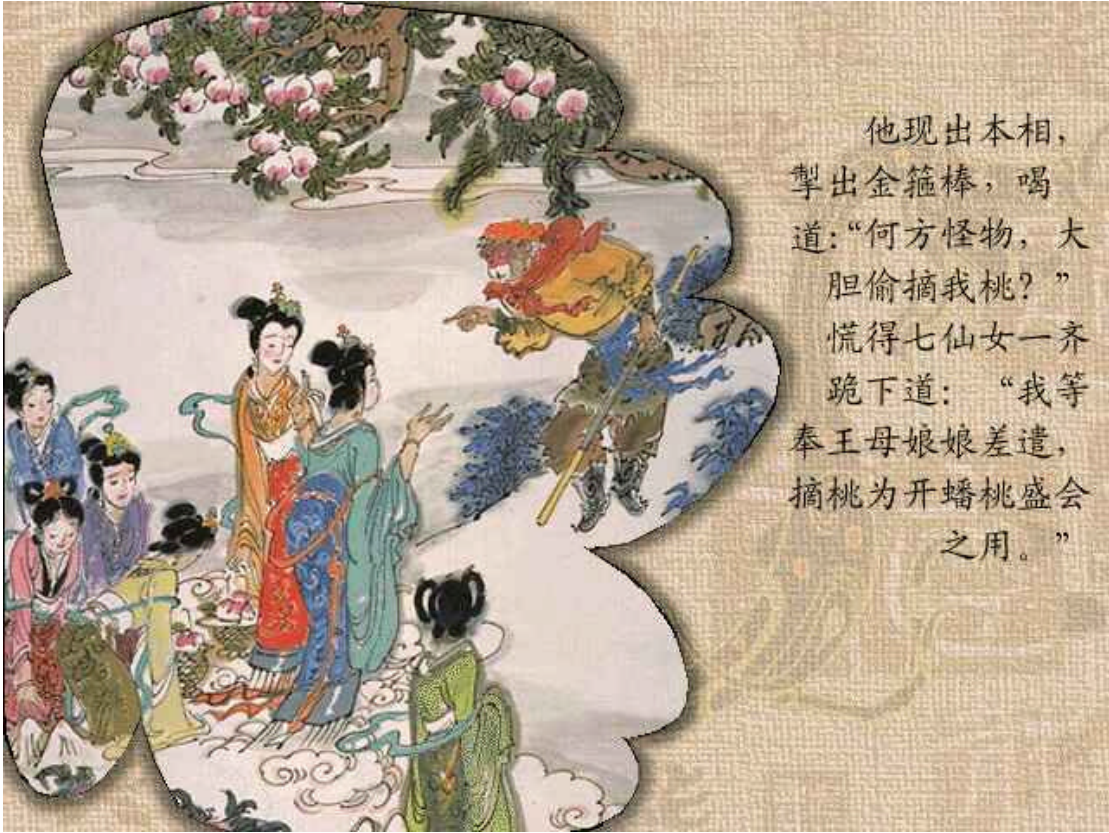 他现出本相,
掣出金箍棒,喝
道:“何方怪物,大
胆偷摘我桃?”
慌得七仙女一齐
跪下道: “我等
奉王母娘娘差遣,
摘桃为开蟠桃盛会
之用。”